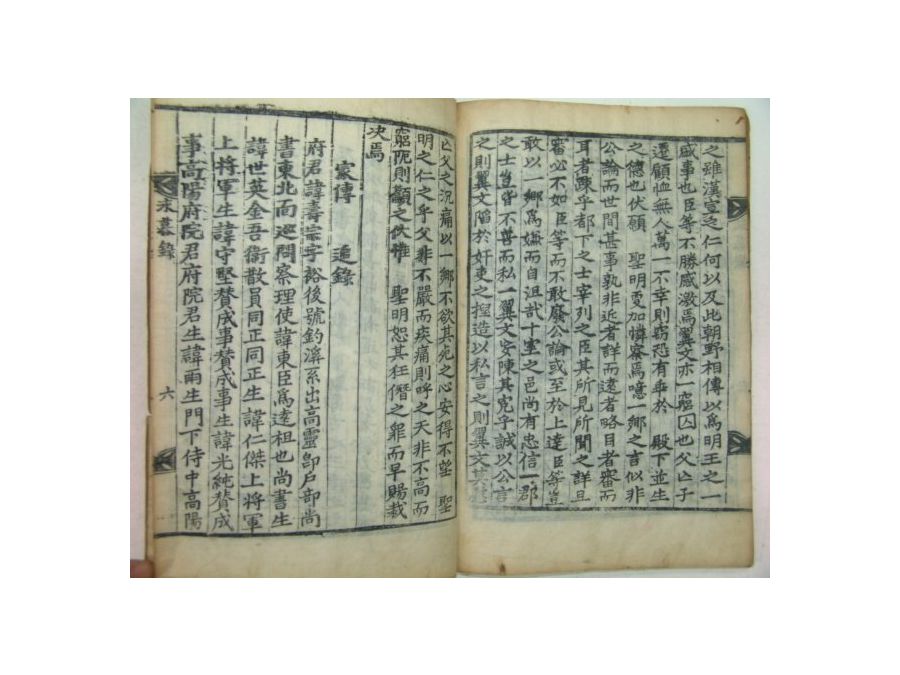 之雖漢宣之仁何以及此朝野相傳以爲明王之一
盛事也臣等不勝感激焉翼文亦一窮囚也父亡子
還顧恤無人萬一不幸則竊恐有乖於 殿下並生
之德也伏願 聖明更加憐察焉噫一鄕之言似非
公論而世間甚事孰非近者詳而遠者略目者審而
耳者踈乎都下之士宰列之臣其所見所聞之詳且
審必不如臣等而不敢廢公論或至於上達臣等豈
敢以一鄕爲嫌而自沮哉十室之邑尚有忠信一郡
之士豈皆不善而私一翼文安陳其寃乎誠以公言
之則翼文陷於奸吏之揑造以私言之則翼文其
亡父之沉痛以一鄕不欲其死之心安得不望 聖
明之仁之乎父非不嚴而疾痛則呼之天非不高而
窮阨則籲之伏惟 聖明恕其狂僭之罪而早賜裁
决焉
家傳 追錄
府君諱壽宗字裕後號釣濱系出高靈卽戶部尚
書東北面廵問察理使諱東臣爲遠祖也尚書生
諱世英金吾衞散員同正同正生諱仁傑上將軍
上將軍生諱守堅贊成事贊成事生諱光純贊成
事高陽府院君府院君生諱雨生門下侍中高陽
永慕錄
六